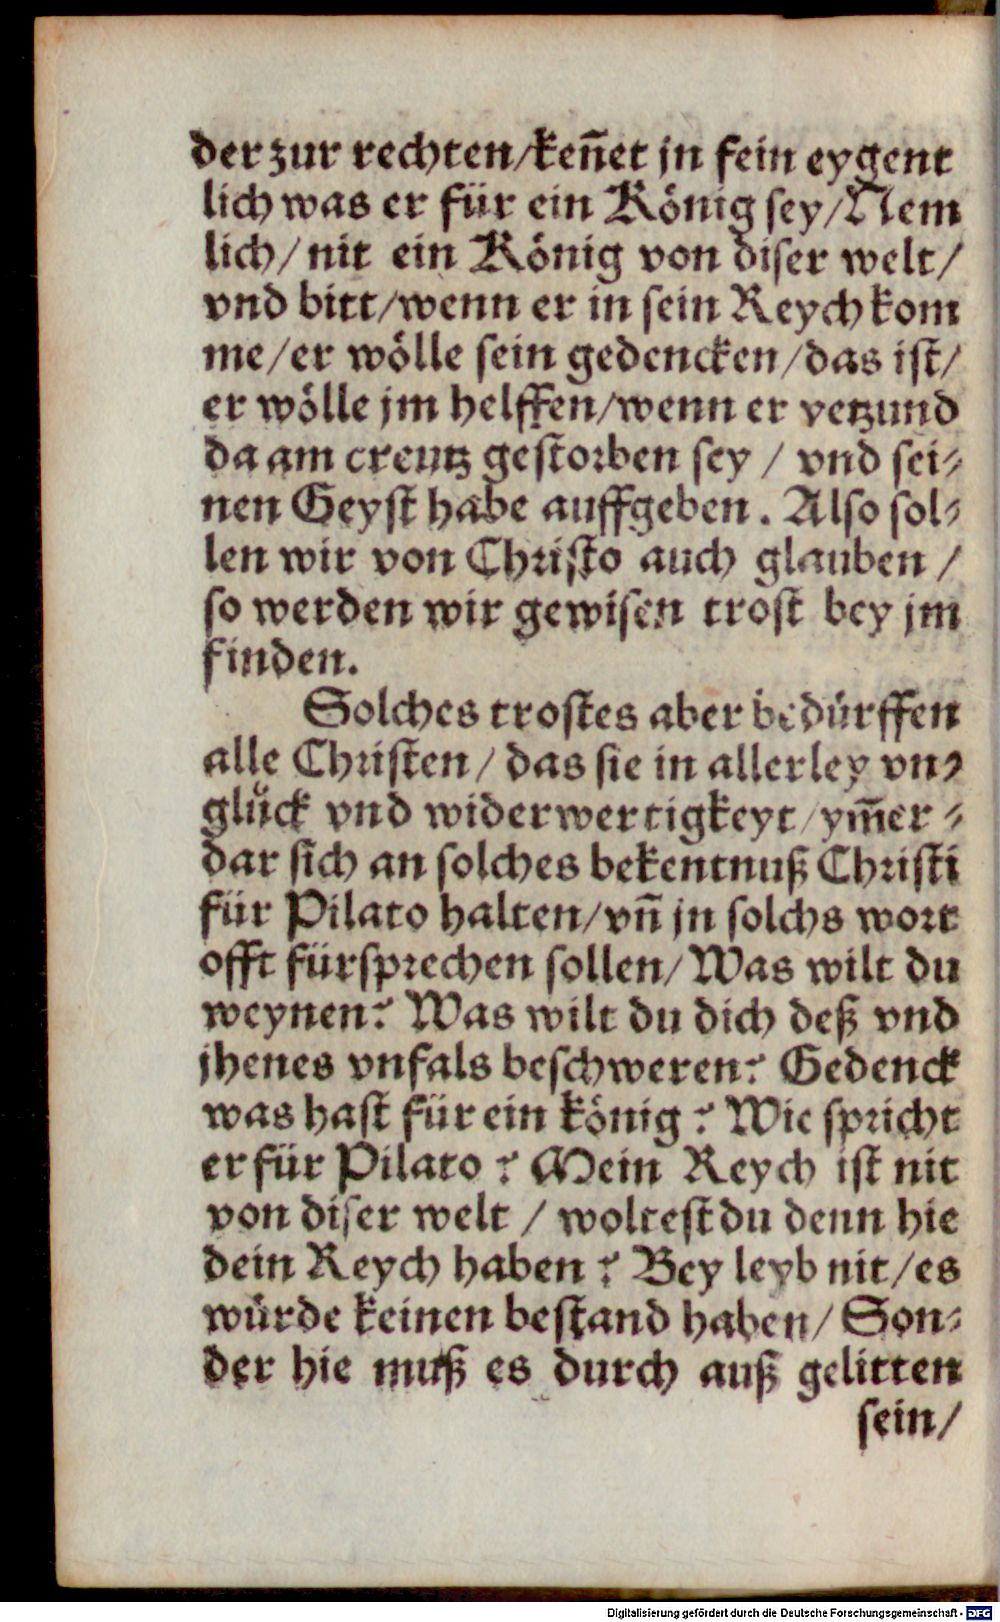 der zur rechten/ken̄et jn fein eygent
lich was er für ein König sey/Nem
lich/ nit ein König von diser welt/
vnd bitt/wenn er in sein Reych kom
me/er wölle sein gedencken/das ist/
er wölle jm helffen/wenn er yetzund
da am creutz gestorben sey / vnd sei⸗
nen Geyst habe auffgeben. Also sol⸗
len wir von Christo auch glauben /
so werden wir gewisen trost bey jm
finden.
Solches trostes aber bedürffen
alle Christen/ das sie in allerley vn⸗
glück vnd widerwertigkeyt/ym̄er⸗
dar sich an solches bekentnuß Christi
für Pilato halten/vn̄ jn solchs wort
offt fürsprechen sollen/ Was wilt du
weynen? Was wilt du dich deß vnd
jhenes vnfals beschweren? Gedenck
was hast für ein könig? Wie spricht
er für Pilato? Mein Reych ist nit
von diser welt / woltest du denn hie
dein Reych haben? Bey leyb nit/es
würde keinen bestand haben/ Son⸗
der hie muß es durch auß gelitten
sein/
Digitalisierung gefördert durch die Deutsche Forschungsgemeinschaft - DFG